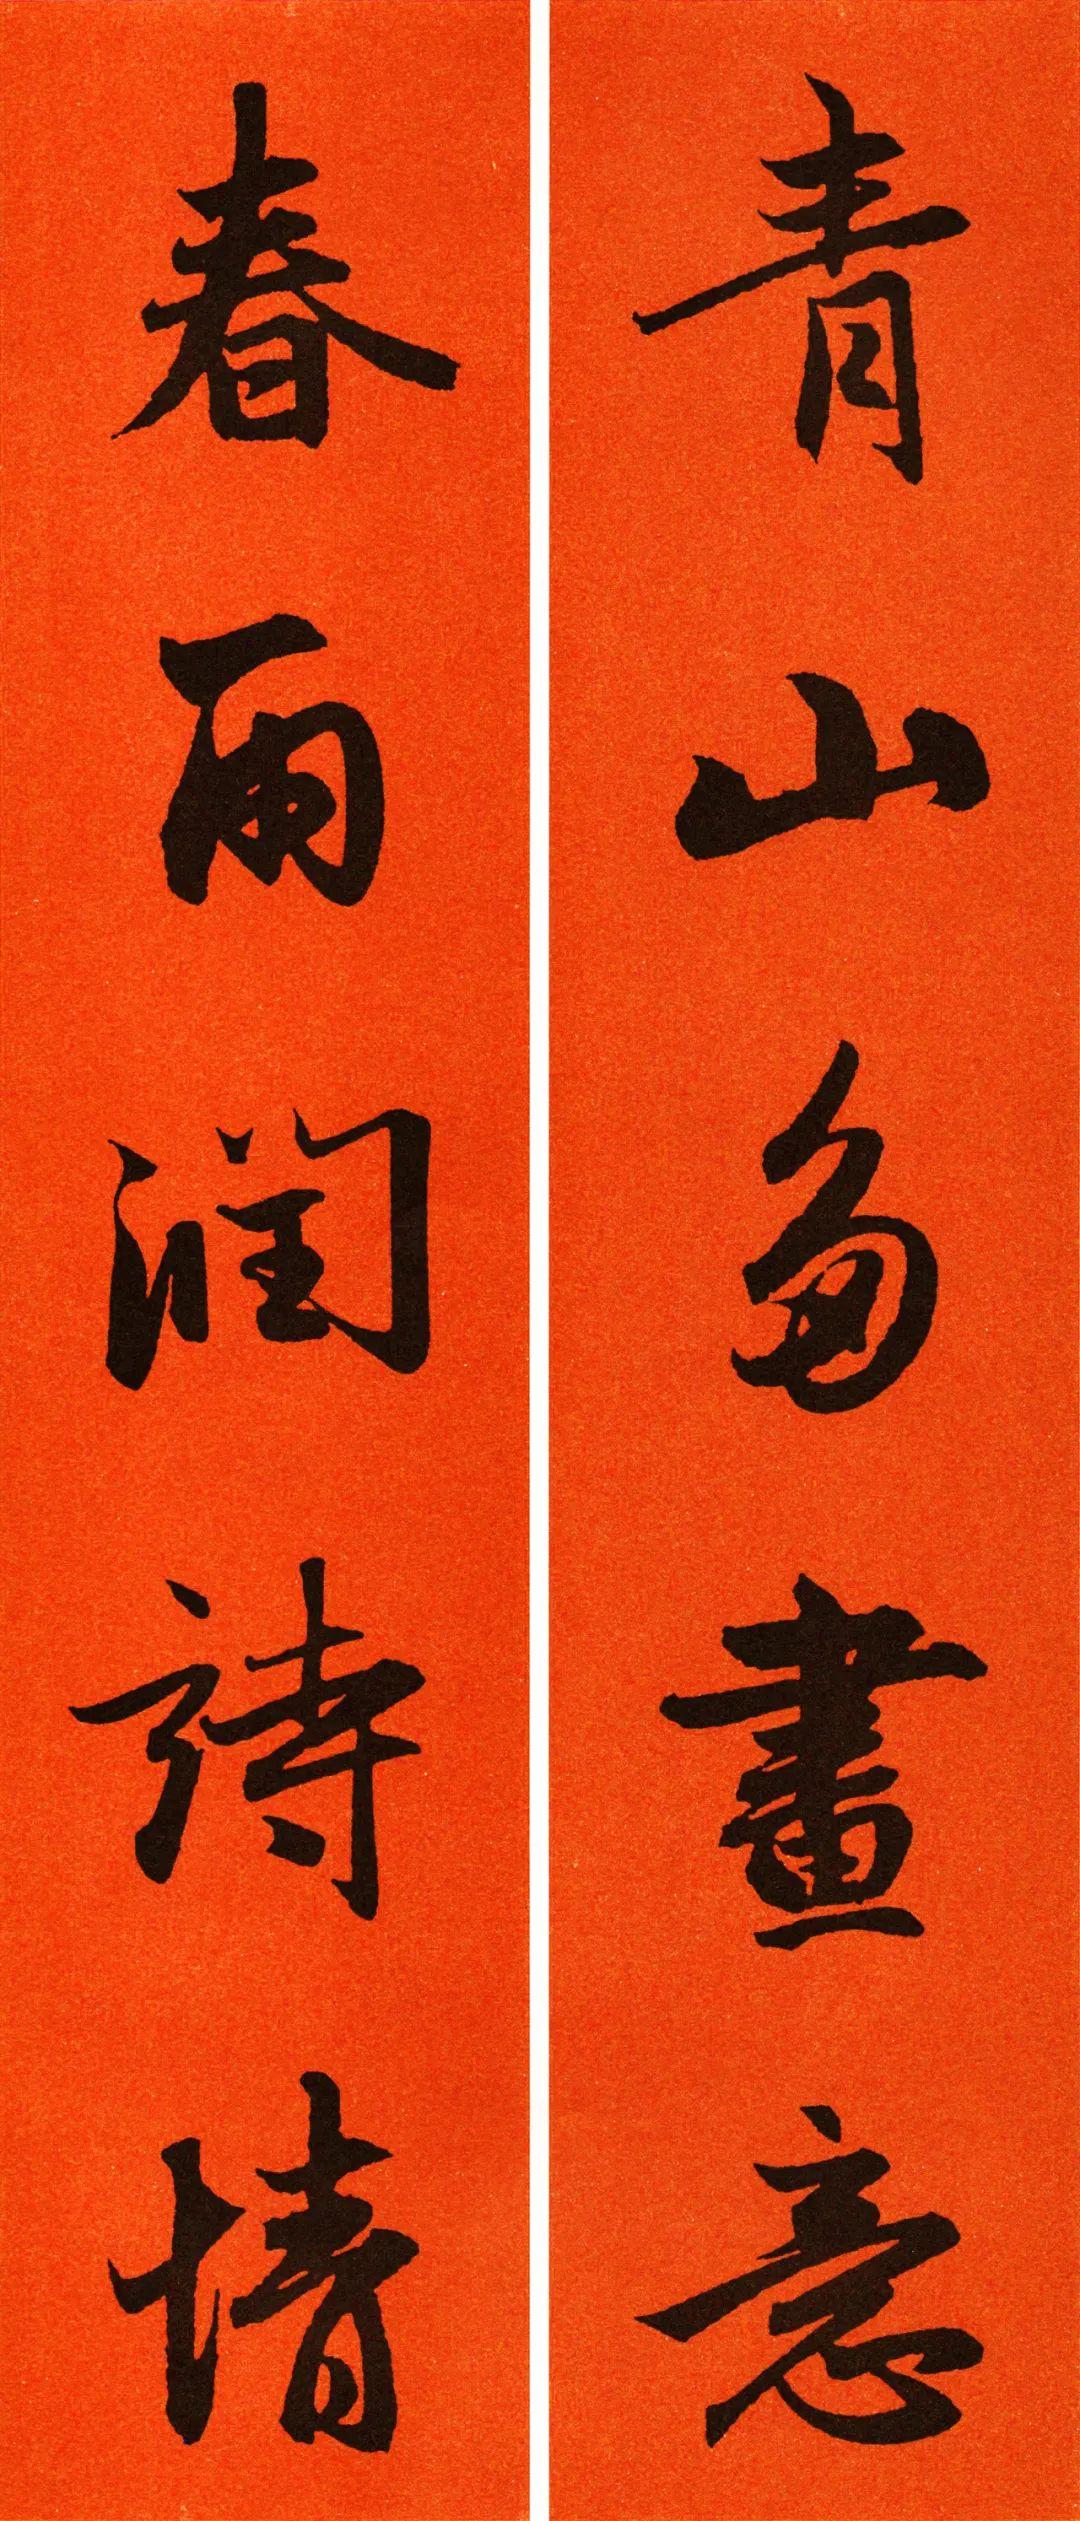 青山多畫意
春雨潤詩情